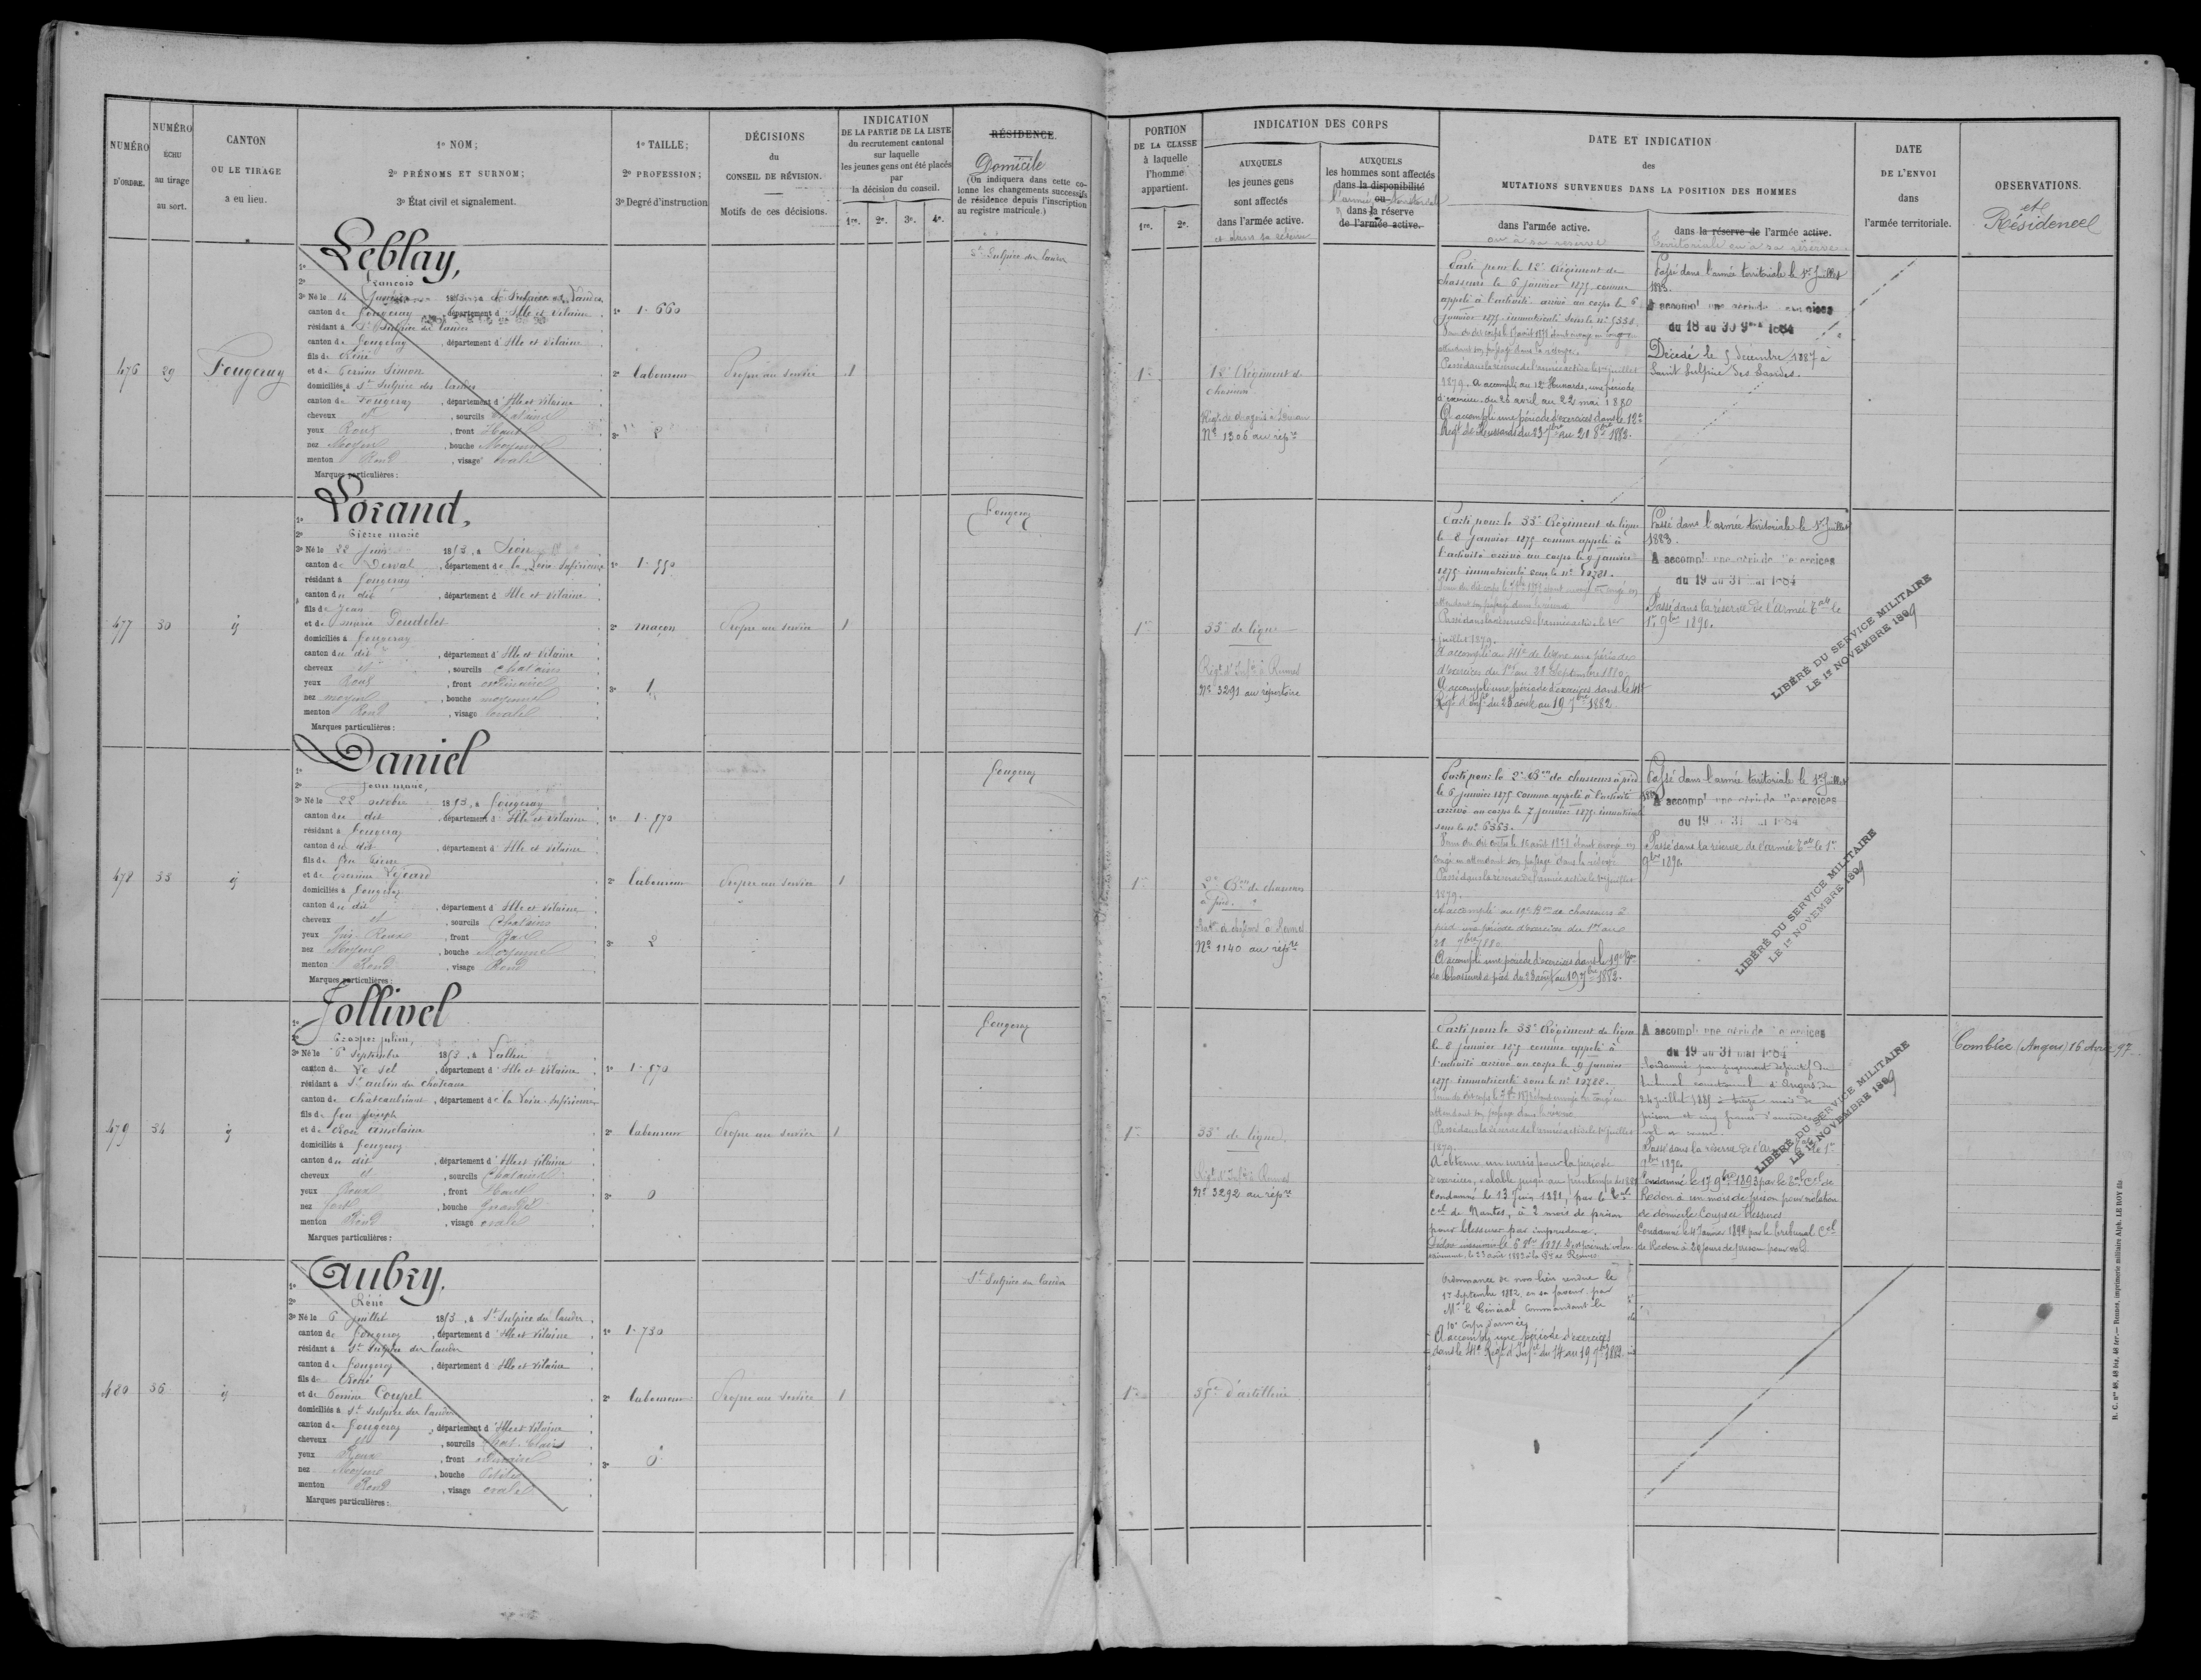 NUMÉRO D'ORDRE.
NUMÉRO ÉCHU au tirage au sort.
CANTON OU LE TIRAGE a eu lieu.
1º NOM;
2º PRÉNOMS ET SURNOM;
3º État civil et signalement.
1º TAILLE;
2º PROFESSION;
3º Degré d'instruction
DÉCISIONS
du
CONSEIL DE RÉVISION.
Motifs de ces décisions.
INDICATION
DE LA PARTIE DE LA LISTE
du recrutement cantonal
sur laquelle
les jeunes gens ont été placés
par
la décision du conseil.
1re. 2e. 3e. 4e.
RÉSIDENCE.
Domicile
(On indiquera dans cette colonne les changements successifs de résidence depuis l'inscription au registre matricule.)
PORTION
DE LA CLASSE
à laquelle
l'homme
appartient.
1re. 2e.
INDICATION DES CORPS
AUXQUELS
les jeunes gens
sont affectés
dans l'armée active.
AUXQUELS
les hommes sont affectés
dans la disponibilité
ou
dans la réserve
de l'armée active.
DATE ET INDICATION
des
MUTATIONS SURVENUES DANS LA POSITION DES HOMMES
dans l'armée active.
ou à sa réserve
dans la réserve de l'armée active.
territoriale ou à sa réserve
DATE
DE L'ENVOI
dans
l'armée territoriale.
OBSERVATIONS.
et
Résidence
476 29 Fougeray
1º Leblay,
2º François
3º Né le 14
canton de Fougeray, département d'Ille et Vilaine
résidant à St Sulpice des landes
canton de Fougeray, département d'Ille et Vilaine
fils de René
et de Perrine Simon
domiciliés à St Sulpice des landes
canton de Fougeray, département d'Ille et Vilaine
cheveux et, sourcils Chatains
yeux Roux, front Haut
nez Moyen, bouche Moyenne
menton Rond, visage ovale
Marques particulières:
1º 1.660
2º laboureur
3º 2
Propre au service
1
St Sulpice des landes
1re
12e Régiment de
chasseurs
Nº 1306 au répre
Parti pour le 12e Régiment de
chasseurs le 6 janvier 1875 comme
appelé à l'activité arrivé au corps le 6
janvier 1875 immatriculé sous le nº 5358.
attendant son passage dans la réserve.
Passé dans la réserve de l'armée active le 1er juillet
1879. A accompli au 12e Hussards, une période
d'exercices du 26 avril au 22 mai 1880
A accompli une période d'exercices dans le 12e
Regt de Hussards du 23 7bre au 20 8bre 1882.
Passé dans l'armée territoriale le 1er Juillet
1883.
A accompli une période d'exercices
du 18 au 30 9bre 1884
Décédé le 5 décembre 1887 à
Saint Sulpice des Landes.
477 30 id
1º Lorand,
2º Pierre marie
3º Né le 22 Juin 1853, à Sion
canton de Derval, département de la Loire Inférieure
résidant à Fougeray
canton du dit, département d'Ille et Vilaine
fils de Jean
et de marie Poudelet
domiciliés à Fougeray
canton du dit, département d'Ille et Vilaine
cheveux et, sourcils Chatains
yeux Roux, front ordinaire
nez moyen, bouche moyenne
menton Rond, visage ovale
Marques particulières:
1º 1.550
2º maçon
3º 1
Propre au service
1
Fougeray
1re
33e de ligne
Régt d'Infie à Rennes
Nº 3291 au répertoire
Parti pour le 33e Régiment de ligne
le 8 Janvier 1875 comme appelé à
l'activité arrivé au corps le 9 janvier
1875 immatriculé sous le nº
attendant son passage dans la réserve
Passé dans la réserve de l'armée active le 1er
juillet 1879.
A accompli au 41e de ligne une période
d'exercices du 1er au 28 Septembre 1880
A accompli une période d'exercices dans le 41e
Régt d'Infie du 23 août au 19 7bre 1882.
Passé dans l'armée territoriale le 1er Juillet
1883.
A accompli une période d'exercices
du 19 au 31 mai 1884
Passé dans la réserve de l'Armée Tale le
1er 9bre 1890.
LIBÉRÉ DU SERVICE MILITAIRE
LE 1er NOVEMBRE 1899
478 33 id
1º Daniel
2º Jean marie,
3º Né le 22 octobre 1853, à Fougeray
canton du dit, département d'Ille et Vilaine
résidant à Fougeray
canton du dit, département d'Ille et Vilaine
fils de feu Pierre
et de Perrine
domiciliés à Fougeray
canton du dit, département d'Ille et Vilaine
cheveux et, sourcils Chatains
yeux Gris-Roux, front Bas
nez Moyen, bouche Moyenne
menton Rond, visage Rond
Marques particulières:
1º 1.570
2º laboureur
3º 2
Propre au service
1
Fougeray
1re
2e Bon de chasseurs
à pied.
Nº 1140 au répre
Parti pour le 2e Bon de chasseurs à pied
le 6 janvier 1875 comme appelé à l'activité
arrivé au corps le 7 janvier 1875 immatriculé
sous le nº 6363.
congé en attendant son passage dans la réserve
Passé dans la réserve de l'armée active le 1er juillet
1879.
A accompli au 19e Bon de chasseurs à
pied une période d'exercices du 1er au
28 7bre 1880
A accompli une période d'exercices dans le 19e Bon
de Chasseurs à pied du 23 août au 19 7bre 1882.
Passé dans l'armée territoriale le 1er Juillet
1883
A accompli une période d'exercices
du 19 au 31 mai 1884
Passé dans la réserve de l'armée Tale le 1er
9bre 1890.
LIBÉRÉ DU SERVICE MILITAIRE
LE 1er NOVEMBRE 1899
479 34 id
1º Jollivel
2º Prosper julien,
3º Né le 6 Septembre 1853, à
canton de Le Sel, département d'Ille et Vilaine
résidant à St aubin des châteaux
canton de châteaubriant, département de la Loire Inférieure
fils de feu Joseph
et de
domiciliés à Fougeray
canton du dit, département d'Ille et Vilaine
cheveux et, sourcils Chatains
yeux Roux, front Haut
nez fort, bouche Grande
menton Rond, visage ovale
Marques particulières:
1º 1.570
2º laboureur
3º 0
Propre au service
1
Fougeray
1re
33e de ligne.
Régt d'Infie à Rennes
Nº 3292 au répre
Parti pour le 33e Régiment de ligne
le 8 janvier 1875 comme appelé à
l'activité arrivé au corps le 9 janvier
1875 immatriculé sous le nº
attendant son passage dans la réserve
Passé dans la réserve de l'armée active le 1er juillet
1879.
A obtenu un sursis pour la période
d'exercices, valable jusqu'au printemps de 1881
Condamné le 13 Juin 1881, par le Tal
cel de Nantes, à 2 mois de prison
pour blessures par imprudence.
A accompli une période d'exercices
du 19 au 31 mai 1884
Condamné par jugement définitif du
tribunal correctionnel d'Angers du
24 juillet 1885 à treize mois de
prison et cinq francs d'amende
Passé dans la réserve de l'armée Tale le 1er
9bre 1890.
Condamné le 17 9bre 1893 par le Tal Cel de
Redon à un mois de prison pour violation
de domicile Coups et blessures
Condamné le 4 Janvier 1894 par le tribunal Cel
de Redon à 20 jours de prison pour vol
LIBÉRÉ DU SERVICE MILITAIRE
LE 1er NOVEMBRE 1899
Combrée (Angers) 16 Avril 97
Ordonnance de non-lieu rendue le
1er Septembre 1882 en sa faveur par
Mr le Général Commandant le
10e Corps d'armée
A accompli une période d'exercices
dans le 41e Régt d'Infie du 14 au 19 7bre 1882
480 36 id
1º Aubry.
2º René
3º Né le 6 juillet 1853, à St Sulpice des landes
canton de Fougeray, département d'Ille et Vilaine
résidant à St Sulpice des landes
canton de Fougeray, département d'Ille et Vilaine
fils de René
et de Perrine Coupel
domiciliés à St Sulpice des landes
canton de Fougeray, département d'Ille et Vilaine
cheveux et, sourcils Chat. Clairs
yeux Roux, front ordinaire
nez Moyen, bouche Petite
menton Rond, visage ovale
Marques particulières:
1º 1.730
2º laboureur
3º 0
Propre au service
1
St Sulpice des landes
1re
35e d'artillerie
R. C. nos 40, 48 bis, 48 ter. — Rennes, imprimerie militaire Alph. LE ROY fils